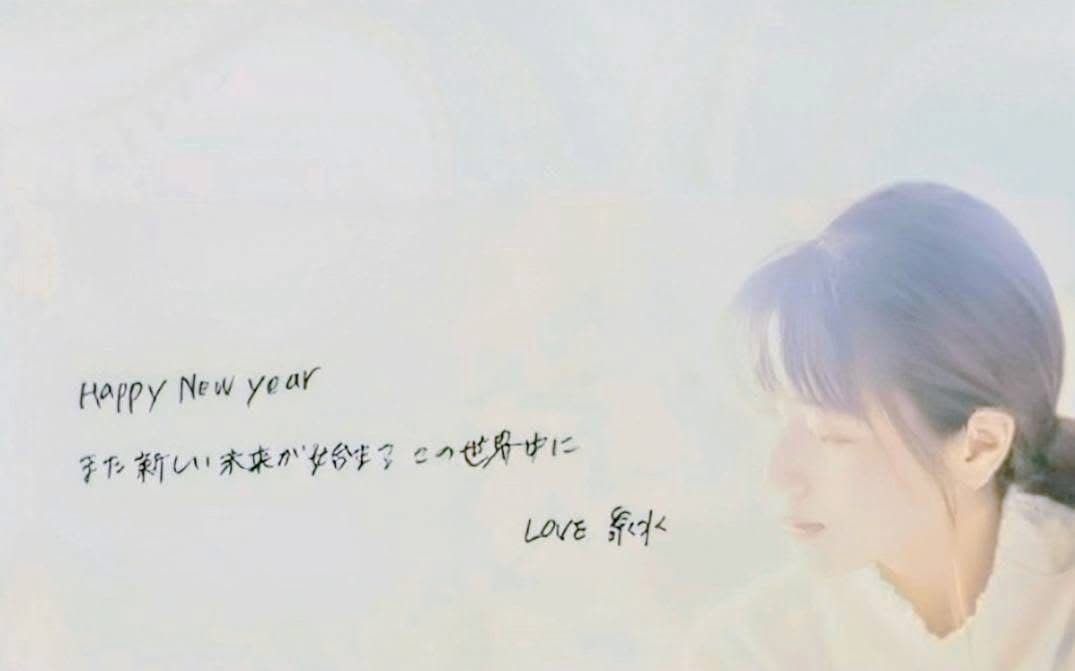 Happy New year
また新しい未来が始まる この世界中に
LOVE